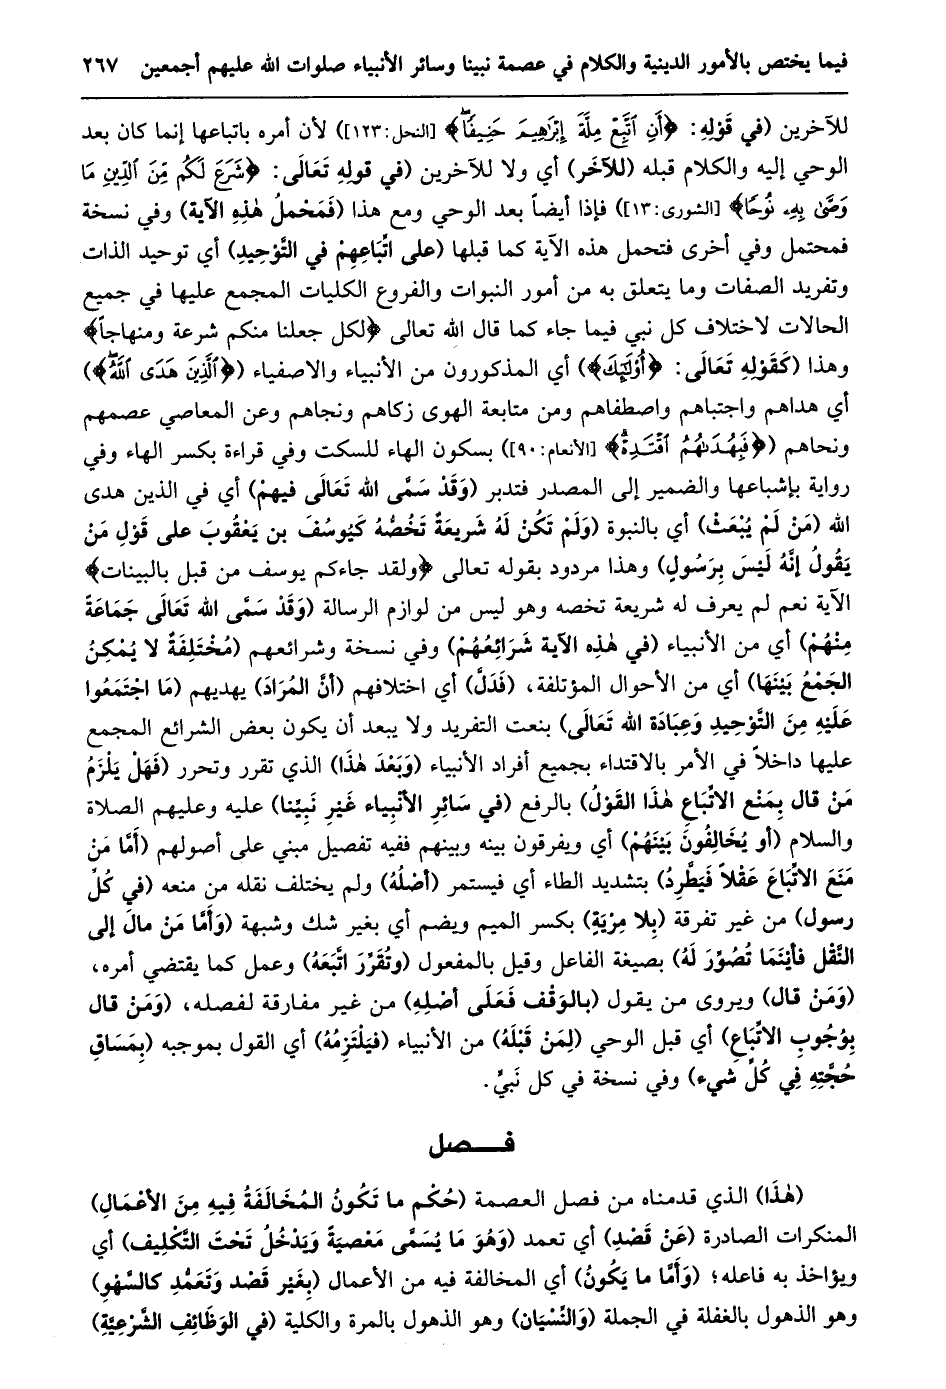 فيما يختص بالأمور الدينية والكلام في عصمة نبينا وسائر الأنبياء صلوات الله عليهم أجمعين ٢٦٧
للآخرين (في قَوْلِهِ: ﴿أَنِ ٱتَّبِعْ مِلَّةَ إِبْرَٰهِيمَ حَنِيفًاۖ﴾ [النحل:١٢٣]) لأن أمره باتباعها إنما كان بعد
الوحي إليه والكلام قبله (للآخَرِ) أي ولا للآخرين (في قولِهِ تَعَالَى: ﴿شَرَعَ لَكُم مِّنَ ٱلدِّينِ مَا
وَصَّىٰ بِهِۦ نُوحًا﴾ [الشورى:١٣]) فإذا أيضاً بعد الوحي ومع هذا (فَمَحْملُ هٰذِهِ الآية) وفي نسخة
فمحتمل وفي أخرى فتحمل هذه الآية كما قبلها (على اتِّباعِهِمْ في التَّوْحِيدِ) أي توحيد الذات
وتفريد الصفات وما يتعلق به من أمور النبوات والفروع الكليات المجمع عليها في جميع
الحالات لاختلاف كل نبي فيما جاء كما قال الله تعالى ﴿لكل جعلنا منكم شرعة ومنهاجاً﴾
وهذا (كَقَوْلِهِ تَعَالَى: ﴿أُوْلَٰٓئِكَ﴾) أي المذكورون من الأنبياء والاصفياء (﴿ٱلَّذِينَ هَدَى ٱللَّهُۖ﴾)
أي هداهم واجتباهم واصطفاهم ومن متابعة الهوى زكاهم ونجاهم وعن المعاصي عصمهم
ونحاهم (﴿فَبِهُدَىٰهُمُ ٱقْتَدِهْۗ﴾ [الأنعام:٩٠]) بسكون الهاء للسكت وفي قراءة بكسر الهاء وفي
رواية بإشباعها والضمير إلى المصدر فتدبر (وَقَدْ سَمَّى الله تَعَالَى فيهِمْ) أي في الذين هدى
الله (مَنْ لَمْ يُبْعَثْ) أي بالنبوة (وَلَمْ تَكُنْ لَهُ شَرِيعَةٌ تَخُصُّهُ كَيُوسُفَ بن يَعْقُوبَ على قَوْلِ مَنْ
يَقُولُ إِنَّهُ لَيْسَ بِرَسُولٍ) وهذا مردود بقوله تعالى ﴿ولقد جاءكم يوسف من قبل بالبينات﴾
الآية نعم لم يعرف له شريعة تخصه وهو ليس من لوازم الرسالة (وَقَدْ سَمَّى الله تَعَالَى جَمَاعَةً
مِنْهُمْ) أي من الأنبياء (في هٰذِهِ الآية شَرَائِعُهُمْ) وفي نسخة وشرائعهم (مُخْتَلِفَةٌ لا يُمْكِنُ
الجَمْعُ بَيْنَهَا) أي من الأحوال المؤتلفة، (فَدَلَّ) أي اختلافهم (أَنَّ المُرَادَ) يهديهم (مَا اجْتَمَعُوا
عَلَيْهِ مِنَ التَّوْحِيدِ وَعِبَادَةِ الله تَعَالَى) بنعت التفريد ولا يبعد أن يكون بعض الشرائع المجمع
عليها داخلاً في الأمر بالاقتداء بجميع أفراد الأنبياء (وَبَعْدَ هٰذَا) الذي تقرر وتحرر (فَهَلْ يَلْزَمُ
مَنْ قال بِمَنْعِ الاتِّباعِ هٰذَا القَوْلُ) بالرفع (في سَائِرِ الأنْبِياء غَيْرِ نَبِيِّنا) عليه وعليهم الصلاة
والسلام (أو يُخَالِفُونَ بَيْنَهُمْ) أي ويفرقون بينه وبينهم ففيه تفصيل مبني على أصولهم (أَمَّا مَنْ
مَنَعَ الاتِّبَاعَ عَقْلاً فَيَطَّرِدُ) بتشديد الطاء أي فيستمر (أصْلُهُ) ولم يختلف نقله من منعه (في كُلِّ
رسول) من غير تفرقة (بِلا مِرْيَةٍ) بكسر الميم ويضم أي بغير شك وشبهة (وَأمَّا مَنْ مالَ إلى
النَّقْلِ فأيْنَمَا تُصُوِّرَ لَهُ) بصيغة الفاعل وقيل بالمفعول (وتُقَرِّرَ اتَّبَعَهُ) وعمل كما يقتضي أمره،
(وَمَنْ قال) ويروى من يقول (بالوَقْفِ فَعَلَى أصْلِهِ) من غير مفارقة لفصله، (وَمَنْ قال
بِوُجُوبِ الاتِّبَاعِ) أي قبل الوحي (لِمَنْ قَبْلَهُ) من الأنبياء (فَيلْتَزِمُهُ) أي القول بموجبه (بِمَسَاقِ
حُجَّتِهِ فِي كُلِّ شيء) وفي نسخة في كل نَبيٍّ.
فــصل
(هٰذَا) الذي قدمناه من فصل العصمة (حُكْم ما تَكُونُ المُخَالَفَةُ فِيهِ مِنَ الأعْمَالِ)
المنكرات الصادرة (عَنْ قَصْدٍ) أي تعمد (وَهُوَ مَا يُسَمَّى مَعْصِيَةً وَيَدْخُلُ تَحْتَ التَّكْلِيفِ) أي
ويؤاخذ به فاعله؛ (وَأَمَّا ما يَكُونُ) أي المخالفة فيه من الأعمال (بِغَيْرِ قَصْدٍ وَتَعَمُّدٍ كالسَّهْوِ)
وهو الذهول بالغفلة في الجملة (وَالنِّسْيَان) وهو الذهول بالمرة والكلية (في الوَظَائِفِ الشَّرْعِيَّةِ)